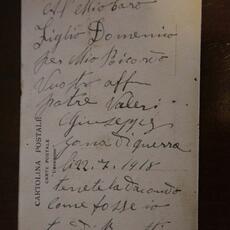 Al Mio Caro
Figlio Domenico
per Mio Ricordo
Vostro aff
patre Valeri
Giuseppe
zona di guerra
li 22.7.1918
tenete la
come fosse io
CARTOLINA POSTALE
CARTE POSTALE